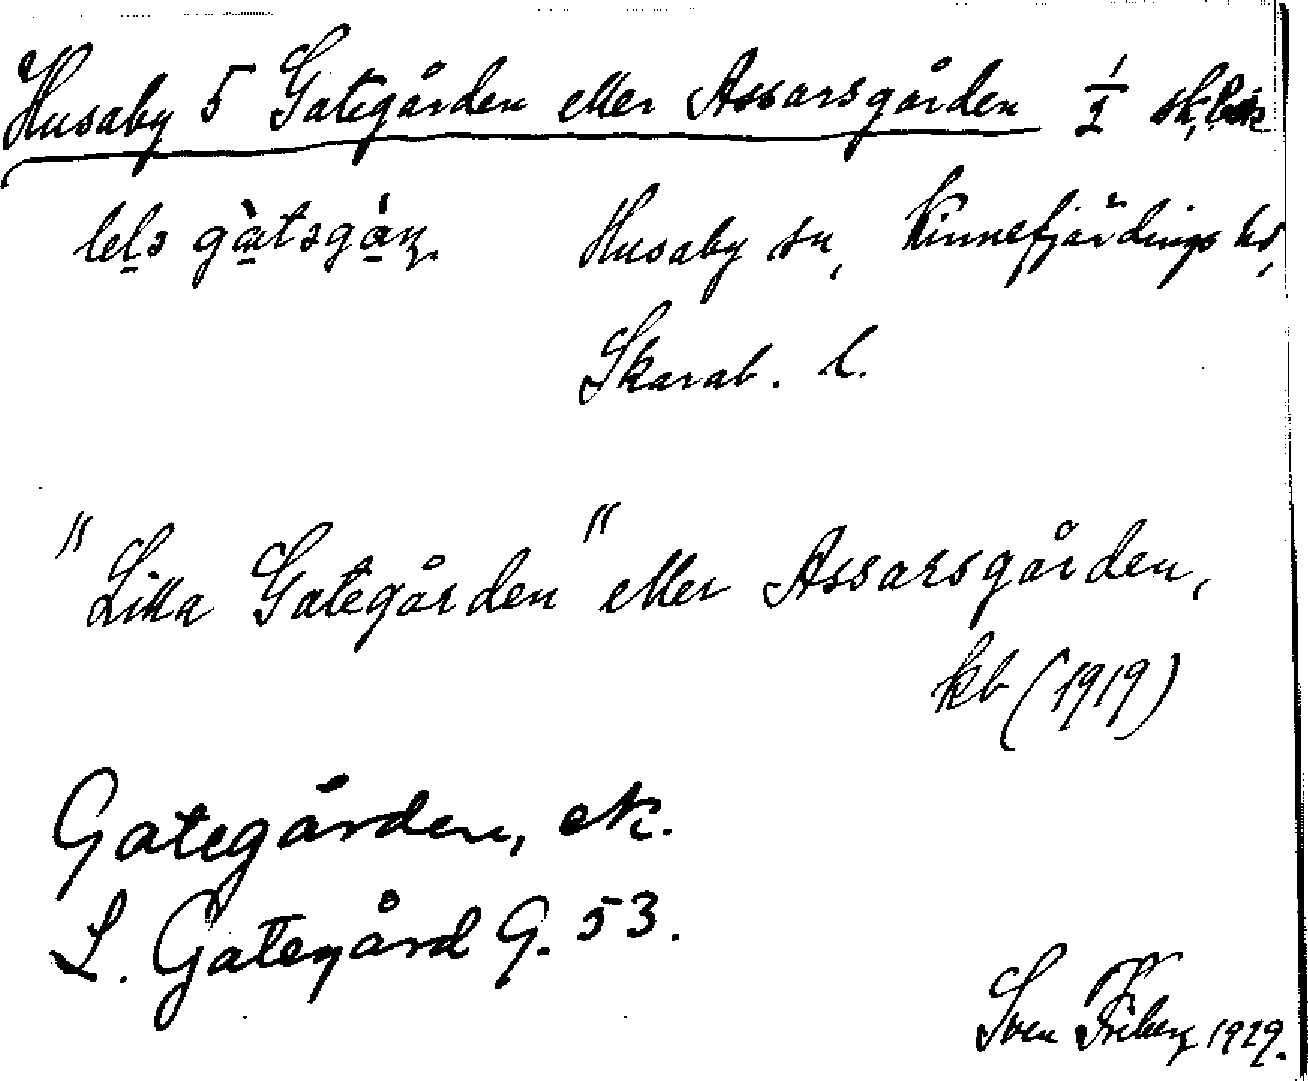 Husaby 5 Gategården eller Assarsgården 1/2 sk.
Husaby sn, Kinnefjärdings hd,
Skarab. l.
"Lilla Gategården" eller Assarsgården,
kb (1919)
Gategården, ek.
L. Gategård G. 53.
Sven Friberg 1929.